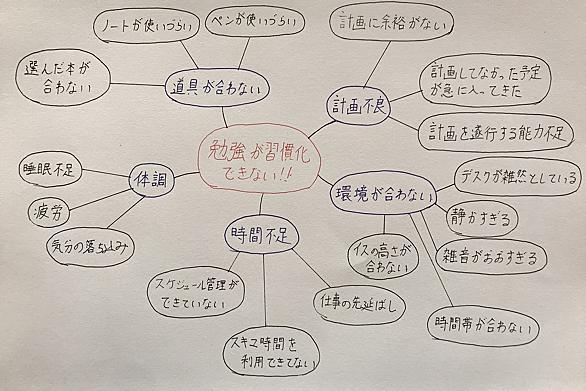 ノートが使いづらい
ペンが使いづらい
選んだ本が
合わない
道具が合わない
計画に余裕がない
計画してなかった予定
が急に入ってきた
計画不良
計画を遂行する能力不足
勉強が習慣化
できない!!
睡眠不足
体調
疲労
気分の落ち込み
環境が合わない
デスクが雑然としている
静かすぎる
雑音がおおすぎる
イスの高さが
合わない
時間帯が合わない
時間不足
スケジュール管理が
できていない
仕事の先延ばし
スキマ時間を
利用できてない